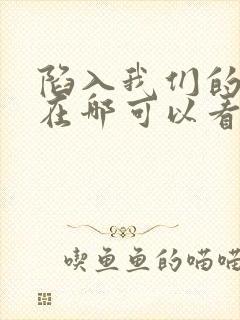 陷入我们的
在哪可以看
喫鱼鱼的喵喵